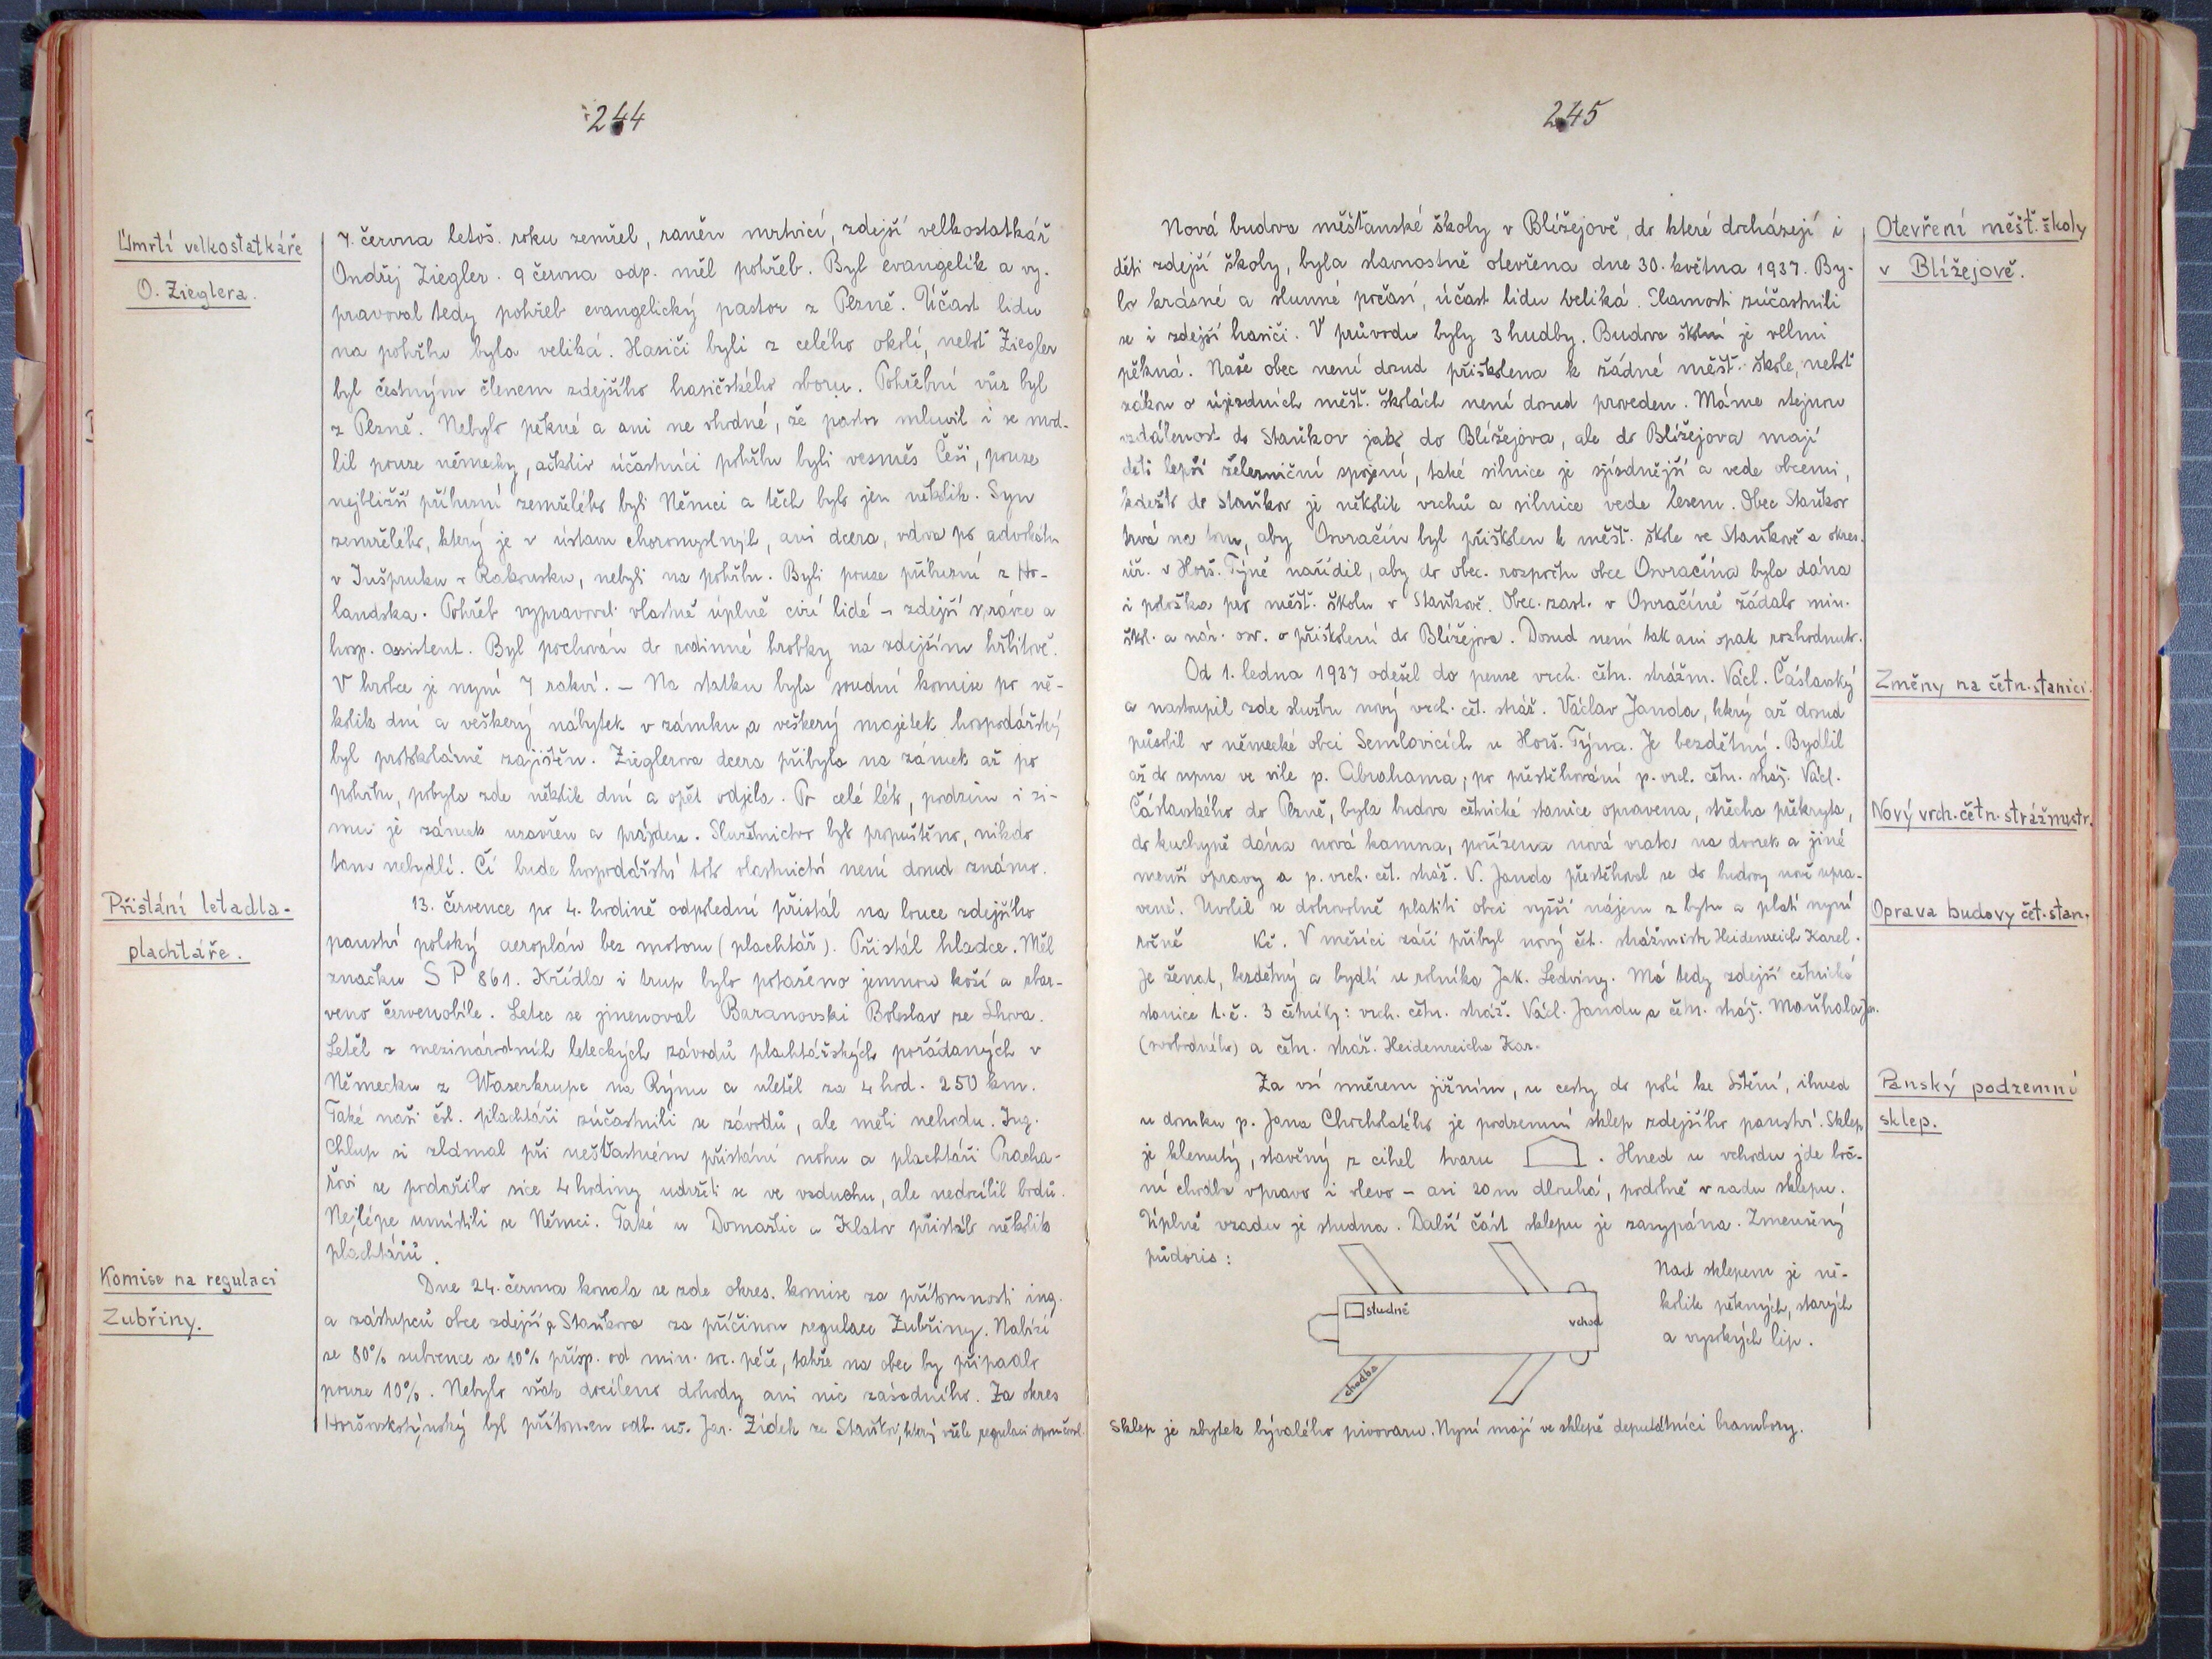 244
Úmrtí velkostatkáře
O. Zieglera.
7. června letoš. roku zemřel, raněn mrtvicí, zdejší velkostatkář
Ondřej Ziegler. 9 června odp. měl pohřeb. Byl evangelík a vy-
pravoval tedy pohřeb evangelický pastor z Plzně. Účast lidu
na pohřbu byla veliká. Hasiči byli z celého okolí, neboť Ziegler
byl čestným členem zdejšího hasičského sboru. Pohřební vůz byl
z Plzně. Nebylo pěkné a ani ne vhodné, že pastor mluvil i se mod-
lil pouze německy, ačkoliv účastníci pohřbu byli vesměs Češi, pouze
nejbližší příbuzní zemřelého byli Němci a těch bylo jen několik. Syn
zemřelého, který je v ústavu choromyslných, ani dcera, vdova po advokátu
v Inšpruku v Rakousku, nebyli na pohřbu. Byli pouze příbuzní z Ho-
landska. Pohřeb vypravovali vlastně úplně cizí lidé – zdejší správce a
hosp. assistent. Byl pochován do rodinné hrobky na zdejším hřbitově.
V hrobce je nyní 7 rakví. – Na statku byla soudní komise po ně-
kolik dní a veškerý nábytek v zámku a veškerý majetek hospodářský
byl protokolárně zajištěn. Zieglerova dcera přibyla na zámek až po
pohřbu, pobyla zde několik dní a opět odjela. Po celé léto, podzim i zi-
mu je zámek uzavřen a prázden. Služebnictvo bylo propuštěno, nikdo
tam nebydlí. Čí bude hospodářství toto vlastnictví není dosud známo.
Přistání letadla-
plachtáře.
13. července po 4. hodině odpolední přistál na louce zdejšího
panství polský aeroplán bez motoru (plachtář). Přistál hladce. Měl
značku S P 861. Křídla i trup bylo potaženo jemnou koží a zbar-
veno červenobíle. Letec se jmenoval Baranovski Boleslav ze Lvova.
Letěl z mezinárodních leteckých závodů plachtářských pořádaných v
Německu z Waserkrupe na Rýnu a uletěl za 4 hod. 250 km.
Také naši čsl. plachtáři zúčastnili se závodů, ale měli nehodu. Ing.
Chlup si zlámal při nešťastném přistání nohu a plachtáři Pracha-
řovi se podařilo sice 4 hodiny udržeti se ve vzduchu, ale nedocílil bodů.
Nejlépe umístili se Němci. Také u Domažlic a Klatov přistálo několik
plachtářů.
Komise na regulaci
Zubřiny.
Dne 24. června konala se zde okres. komise za přítomnosti ing.
a zástupců obce zdejší a Staňkova za příčinou regulace Zubřiny. Nabízí
se 80% subvence a 10% přísp. od min. soc. péče, takže na obec by připadlo
pouze 10%. Nebylo však docíleno dohody ani nic zásadního. Za okres
Horšovskotýnský byl přítomen odb. uč. Jar. Zídek ze Staňkov, který vřele regulaci doporučoval.
245
Nová budova měšťanské školy v Blížejově, do které docházejí i
děti zdejší školy, byla slavnostně otevřena dne 30. května 1937. By-
lo krásné a slunné počasí, účast lidu veliká. Slavnosti zúčastnili
se i zdejší hasiči. V průvodu byly 3 hudby. Budova školní je velmi
pěkná. Naše obec není dosud přiškolena k žádné měšť. škole, neboť
zákon o újezdních měšť. školách není dosud proveden. Máme stejnou
vzdálenost do Staňkov jako do Blížejova, ale do Blížejova mají
děti lepší železniční spojení, také silnice je sjízdnější a vede obcemi,
kdežto do Staňkov je několik vrchů a silnice vede lesem. Obec Staňkov
trvá na tom, aby Osvračín byl přiškolen k měšť. škole ve Staňkově a okres.
úř. v Horš. Týně nařídil, aby do obec. rozpočtu obce Osvračína byla dána
i položka pro měšť. školu v Staňkově. Obec. zast. v Osvračíně žádalo min.
škol. a nár. osv. o přiškolení do Blížejova. Dosud není tak ani opak rozhodnuto.
Otevření měšť. školy
v Blížejově.
Od 1. ledna 1937 odešel do pense vrch. četn. strážm. Václ. Čáslavský
a nastoupil zde službu nový vrch. čet. stráž. Václav Janda, který až dosud
působil v německé obci Semlovicích u Horš. Týna. Je bezdětný. Bydlil
až do srpna ve vile p. Abrahama; po přestěhování p. vrch. četn. stráž. Václ.
Čáslavského do Plzně, byla budova četnické stanice opravena, střecha překryta,
do kuchyně dána nová kamna, pořízena nová vrata na dvorek a jiné
menší opravy a p. vrch. čet. stráž. V. Janda přestěhoval se do budovy nově upra-
vené. Uvolil se dobrovolně platiti obci vyšší nájem z bytu a platí nyní
ročně Kč. V měsíci září přibyl nový čet. strážmistr Heidenreich Karel.
Je ženat, bezdětný a bydlí u rolníka Jak. Ledviny. Má tedy zdejší četnická
stanice t. č. 3 četníky: vrch. četn. stráž. Václ. Jandu a četn. stráž. Maňhala Jn.
(svobodného) a četn. stráž. Heidenreicha Kar.
Změny na četn. stanici.
Nový vrch. četn. strážmistr.
Oprava budovy čet. stan.
Za vsí směrem jižním, u cesty do polí ke Lštění, ihned
u domku p. Jana Chocholatého je podzemní sklep zdejšího panství. Sklep
je klenutý, stavěný z cihel tvaru . Hned u vchodu jde boč-
ní chodba vpravo i vlevo – asi 20 m dlouhá, podobně v zadu sklepu.
Úplně vzadu je studna. Další část sklepu je zasypána. Zmenšený
půdoris:
Panský podzemní
sklep.
studně
vchod
chodba
Nad sklepem je ně-
kolik pěkných, starých
a vysokých lip.
Sklep je zbytek bývalého pivovaru. Nyní mají ve sklepě deputátníci brambory.